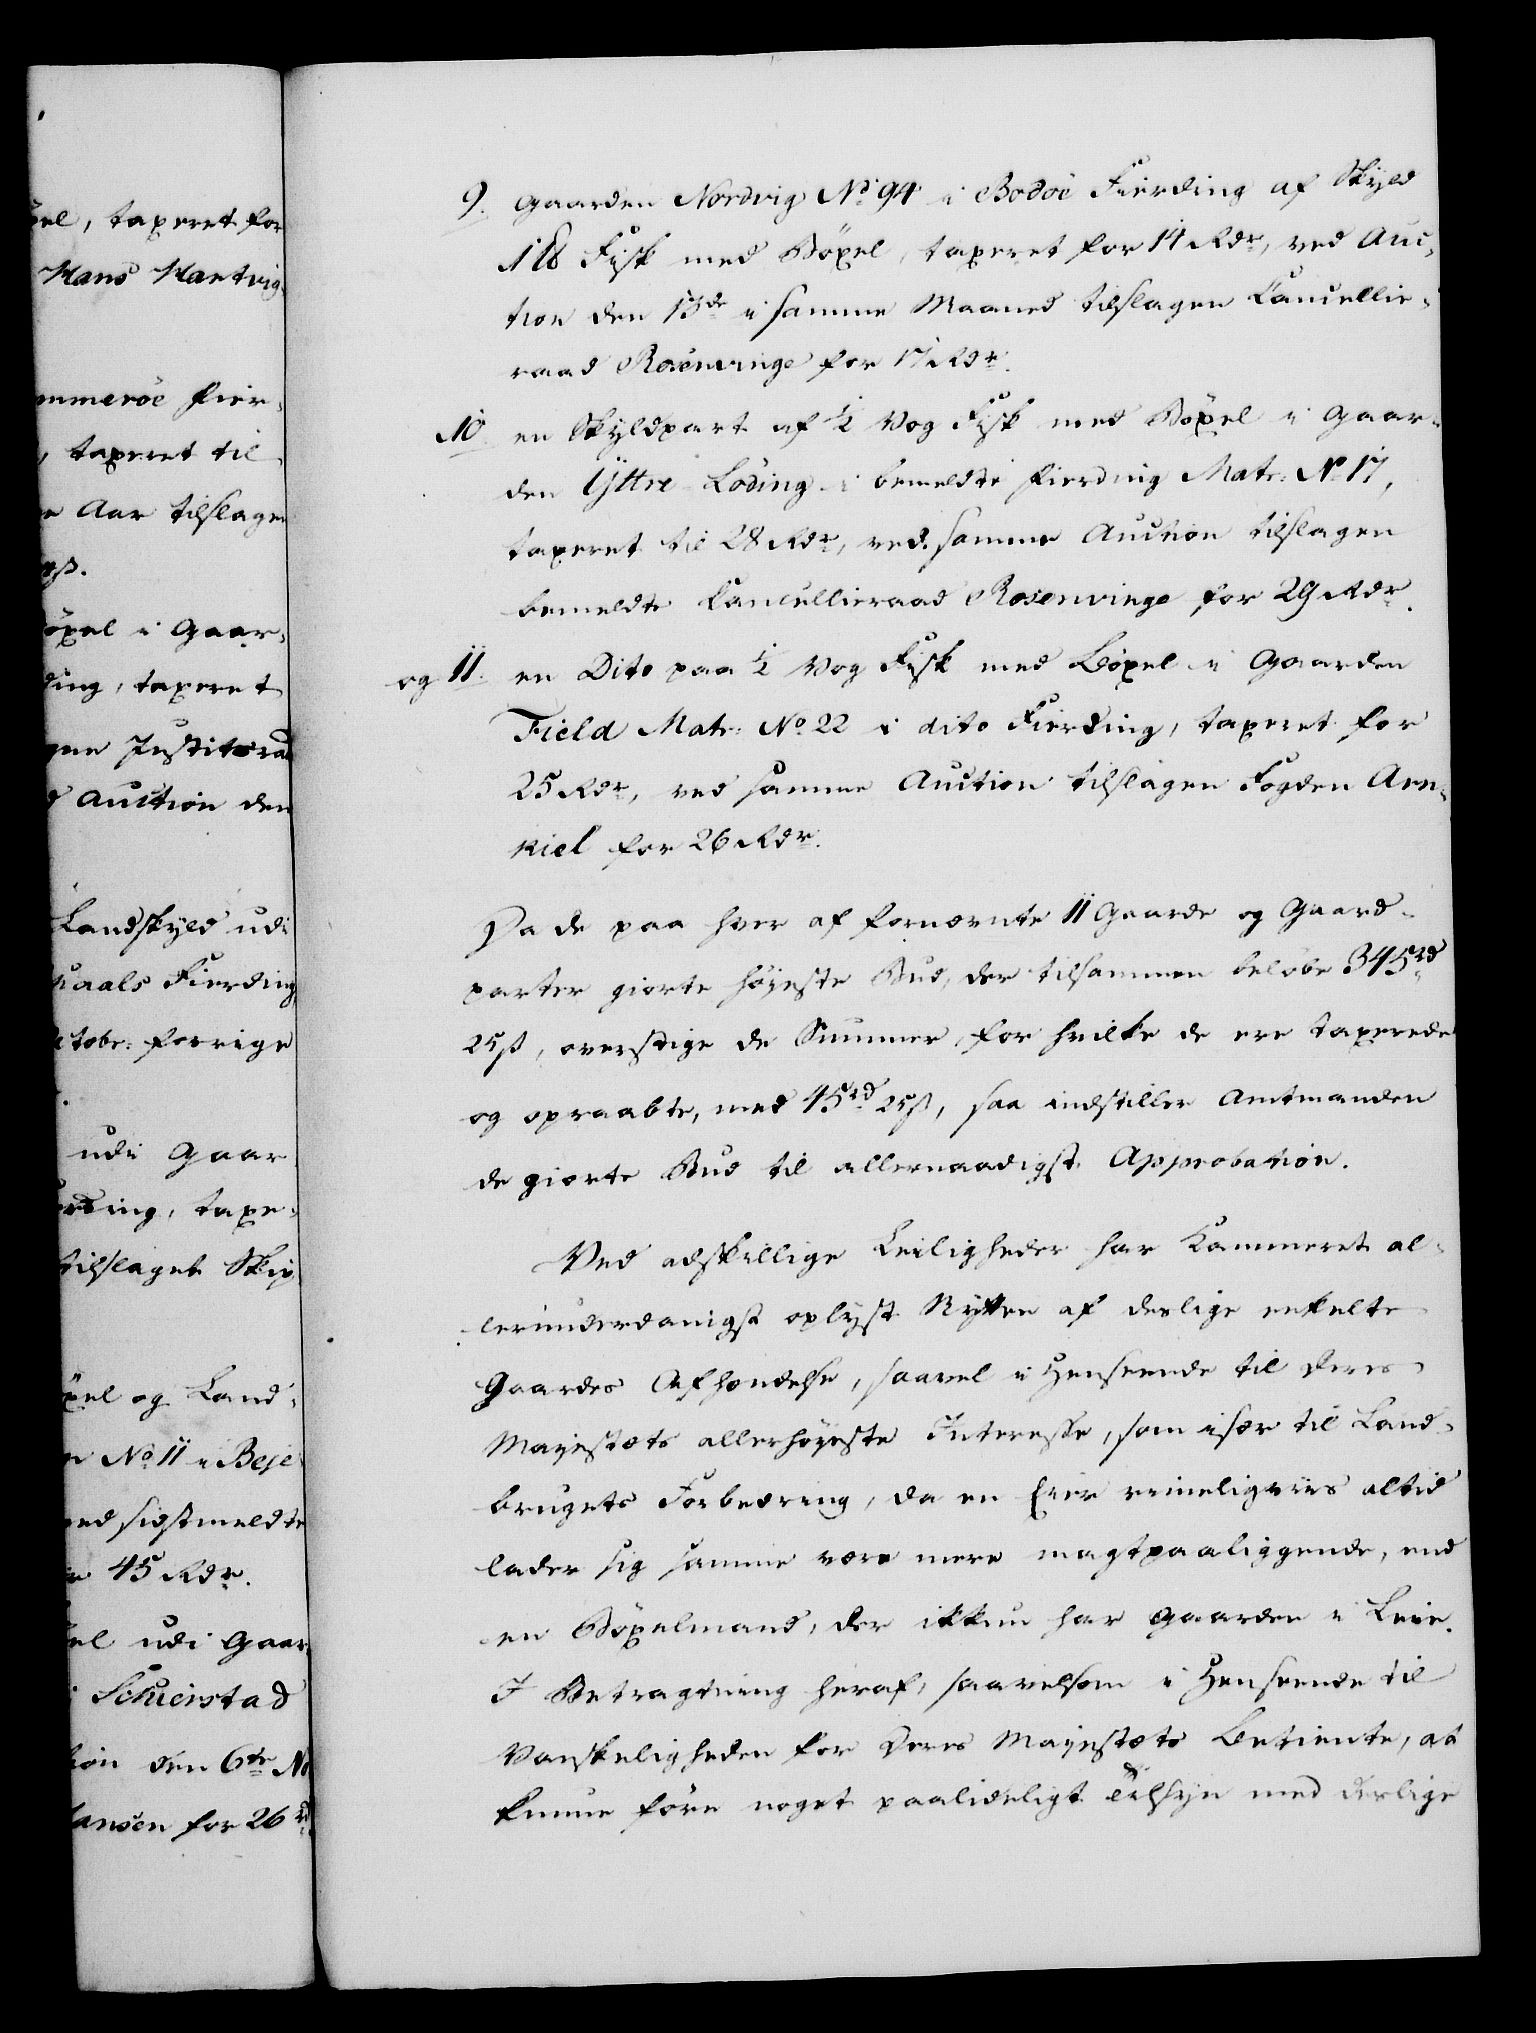 øxel, taxeret for
Hans Hartvig
ammeröe Fier-
, taxeret til
e Aar tilslagen
øxel i Gaar-
ding, taxeret
gne Justitsraad
d Auction den
Landskyld udi
Fierding
ctobr: forrige
udi Gaar
erding, taxe-
tilslaget Skip
øxel og Land-
n No. 11 i Beje
ved sidstmeldte
r 45 Rdr.
el udi Gaar
i Schierstad
tion den 6te No
ansen for 26 rd.
9. Gaarden Nordvig No. 94 i Bodöe Fierding af Skyld
1 ℔ Fisk med Böxel, taxeret for 14 Rdr, ved Auc-
tion den 13de i samme Maaned tilslagen Cancellie-
raad Rosenvinge for 17 Rdr.
10. en Skyldpart af ½ Vog Fisk med Böxel i Gaar-
den Yttre Löding i bemeldte Fierding Matr: No 17,
taxeret til 28 Rdr, ved samme Auction tilslagen
bemeldte Cancellieraad Rosenvinge for 29 Rdr.
og 11. en Dito paa ½ Vog Fisk med Böxel i Gaarden
Field Matr: No. 22 i dito Fierding, taxeret for
25 Rdr, ved samme Auction tilslagen Fogden Arn-
kiel for 26 Rdr.
Da de paa hver af fornævnte 11 Gaarde og Gaard-
parter giorte höyeste Bud, der tilsammen belöbe 345 rd
25 ß, overstige de Summer, for hvilke de ere taxerede
og opraabte, med 45 rd 25 ß, saa indstiller Amtmanden
de giorte Bud til allernaadigst Approbation.
Ved adskillige Leiligheder har Kammeret al-
lerunderdanigst oplyst Nytten af deslige enkelte
Gaardes Afhændelse, saavel i Henseende til Deres
Majestæts allerhöyeste Interesse, som især til Land-
brugets Forbedring, da en Eier rimeligviis altid
lader sig samme være mere magtpaaliggende, end
en Böxelmand, der ikkun har Gaarden i Leie.
I Betragtning heraf, saavelsom i Henseende til
Vanskeligheden for Deres Majestæts Betiente, at
kunne före noget paalideligt Tilsyn med deslige